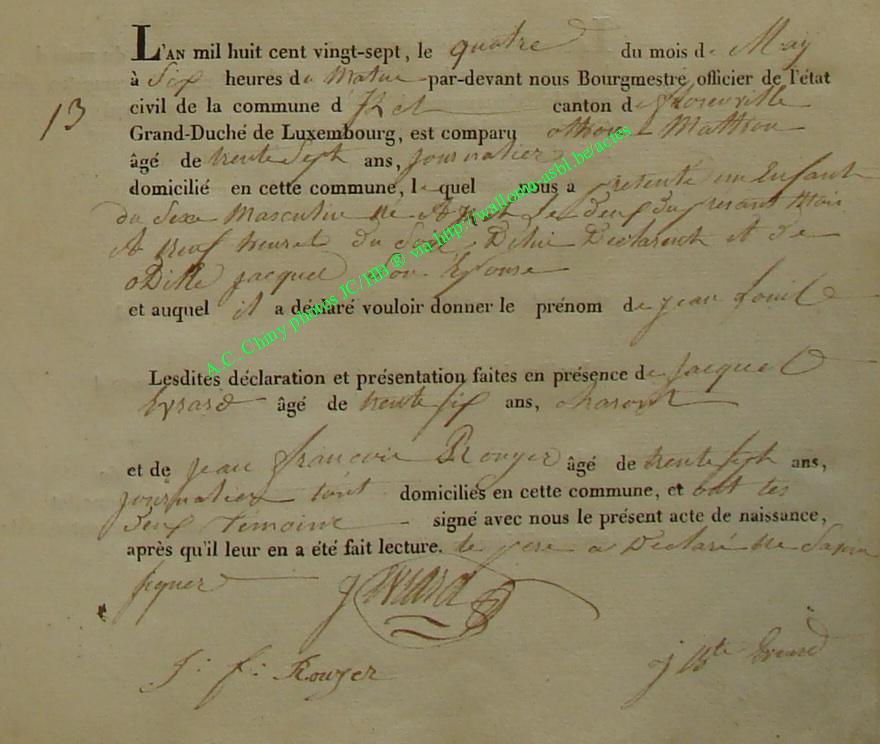 L'AN mil huit cent vingt-sept, le quatre du mois de May
à Six heures du Matin par-devant nous Bourgmestre, officier de l'état
13
civil de la commune d canton de florenville
Grand-Duché de Luxembourg, est comparu othon Mathieu
âgé de trente Sept ans, journalier
domicilié en cette commune, lequel nous a présenté un Enfant
du Sexe Masculin né A le deux du présent Mois
A neuf heures du Soir Délui Déclarent et De
oDille jacques Son Epouse
et auquel il a déclaré vouloir donner le prénom de jean Louis
A.C. Chiny photos JC/HB ® via http://wallonia-asbl.be/actes
Lesdites déclaration et présentation faites en présence de Jacques
Evrard âgé de trente six ans, charon
et de jean françois Rouyer âgé de trente sept ans,
journalier tout domiciliés en cette commune, et ont les
deux témoins signé avec nous le présent acte de naissance,
après qu'il leur en a été fait lecture. le pere a Déclaré ne Savoir
signer
J Evrard
J. f. Rouyer
j Bte Evrard